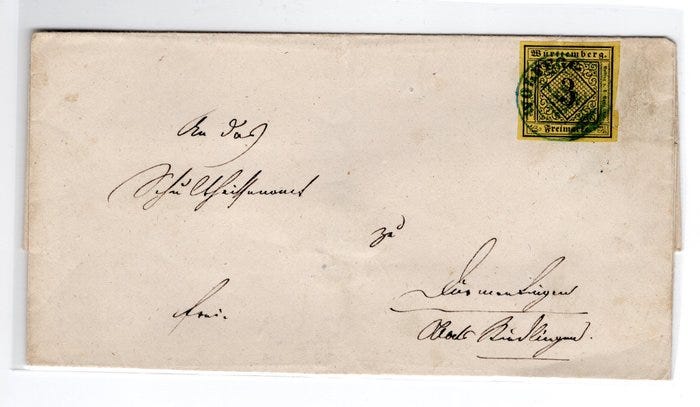 Württemberg.
3
Freimarke
An das
Schultheissenamt
zu
Dürmentingen
Oberamts Riedlingen.
frei.